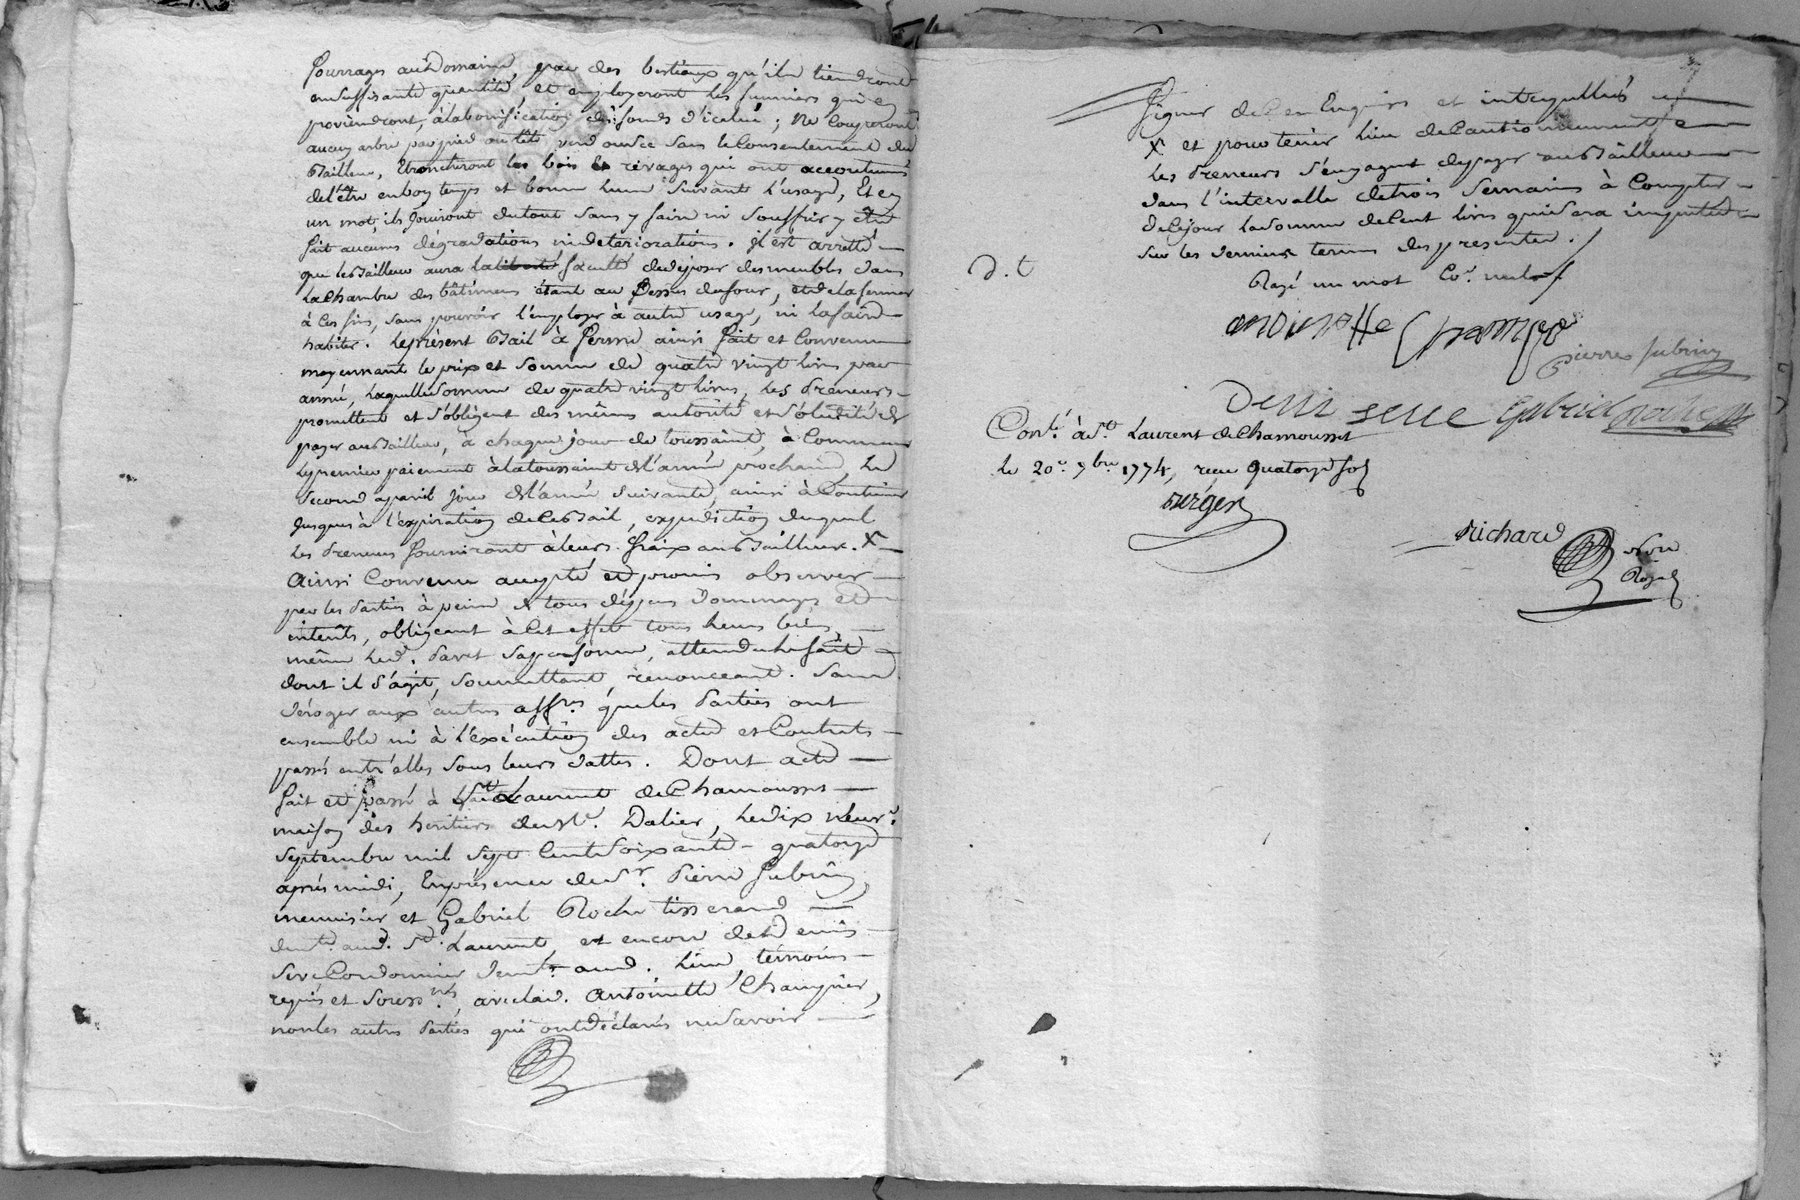 fourrages au Domaine par des bestiaux qu'ils tiendront
en suffisante quantité et employeront les fumiers qui en
proviendront, à la bonification des fonds d'icelui ; ne couperont
aucun arbre par pied ou tête verd ou sec sans le Consentement du
Bailleur, Etroncheront les bois de rivages qui ont accoutumés
de l'être en bon temps et bonne lune suivant l'usage, Et en
un mot, ils Jouiront du tout sans y faire ni souffrir y être
fait aucunes dégradations ni deteriorations. Il est arretté
que le Bailleur aura la liberté faculté de déposer des meubles dans
la Chambre des bâtimens étant au Dessus du four, et de la fermer
à Ces fins, sans pouvoir l'employer à autre usage, ni la faire
habiter. Le présent Bail à Ferme ainsi fait et Convenu
moyennant le prix et somme de quatre vingt livres par
année, Laquelle somme de quatre vingt livres, Les Preneurs
promettent et s'obligent des mêmes autorité et solidité de
payer au Bailleur, à chaque jour de toussaint, à Commencer
le premier paiement à la toussaint de l'année prochaine, Le
second a pareil jour de l'année suivante, ainsi à Continuer
Jusques à l'expiration de Ce Bail, expedition duquel
Les Preneurs fourniront à leurs fraix au Bailleur. X
Ainsi Convenu accepté et promis observer
par les Parties à peine de tous dépens Dommages et
intérêts, obligeant à Cet effet tous leurs biens
même led. Pavet sa personne, attendu le fait
dont il s'agit, soumettant, renonceant. Sans
déroger aux autres affres. que les Parties ont
ensemble ni à l'exécution des actes et Contrats
passés entr'elles sous leurs dattes. Dont acte
fait et passé à St Laurent de Chamousset
maison des heritiers du Sr. Dalier, Le dix neuf
Septembre mil Sept Cent Soixante quatorze
après midi, En présence de Sr. Pierre Subrin,
menuisier et Gabriel Roche tisserand
demt. aud. St. Laurent, et encore de Denis
Serve Cordonnier demt. aud. Lieu, témoins
requis et soussnés. avec lad. Antoinette Champier,
non les autres Parties qui ont déclarés ne savoir
Signer de Ce Enquis et interpellés
X et pour tenir Lieu de Cautionnement
Les Preneurs s'engagent de payer au Bailleur
dans l'intervalle de trois Semaines à Compter
de Ce jour La somme de Cent livres qui sera imputée
sur les derniers termes des presentes.
Rayé un mot Co. nul
D. t
antoinette Champier
pierre subrin
Deni serve Gabriel roche
Conlé. à St. Laurent de Chamousset
le 20e. 7bre 1774, recu quatorze sols
Richard
Nore
Royal